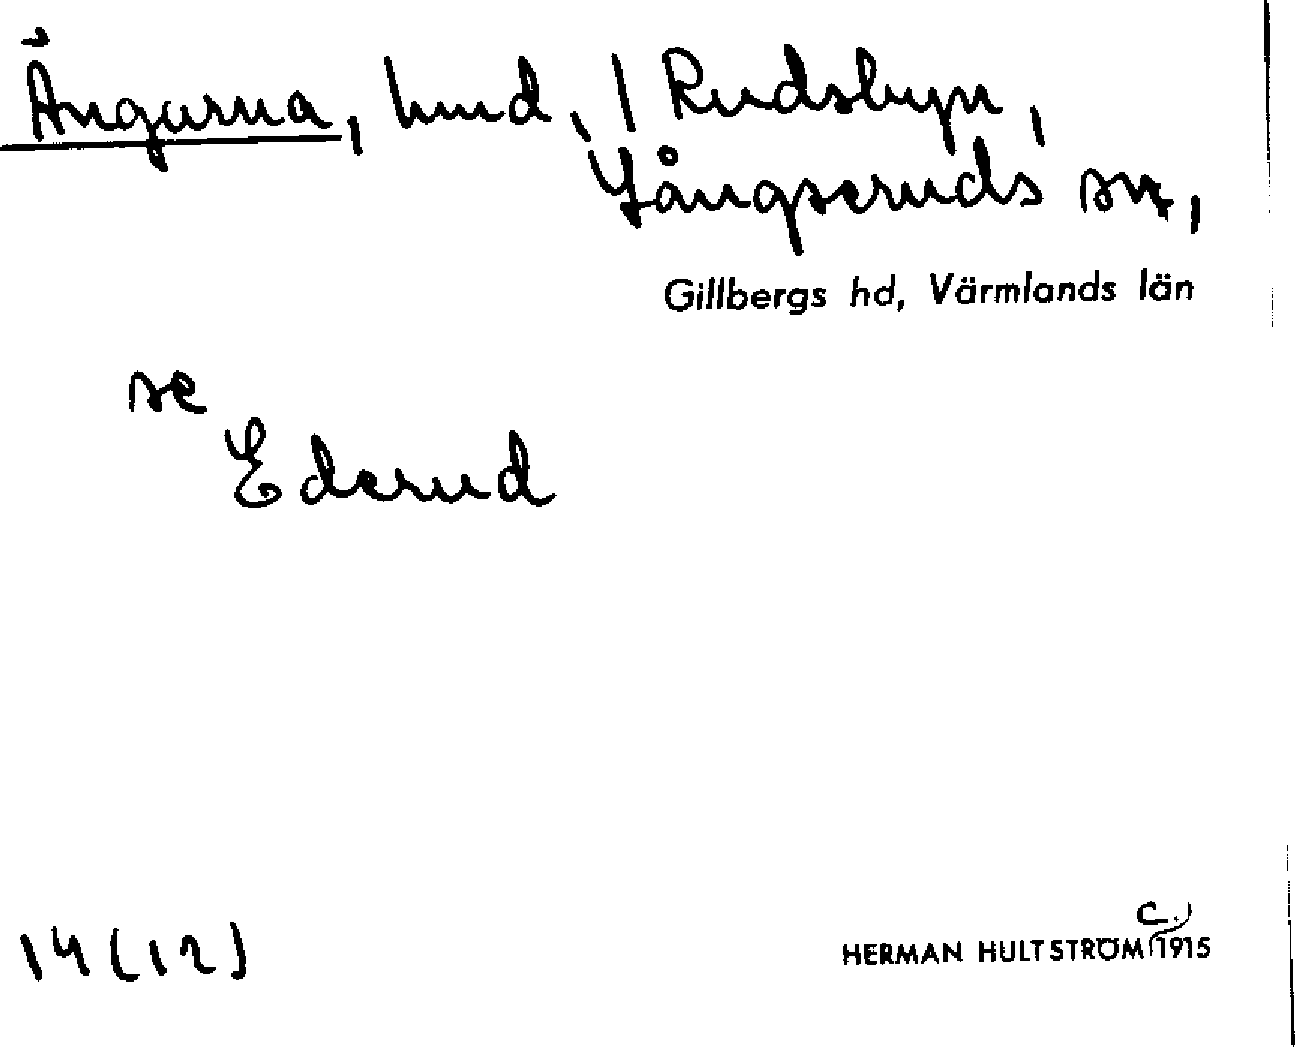 Ängarna, hmd, / Rudsbyn,
Långseruds sn,
Gillbergs hd, Värmlands län
se
Ederud
14(12)
HERMAN HULTSTRÖM C. 1915